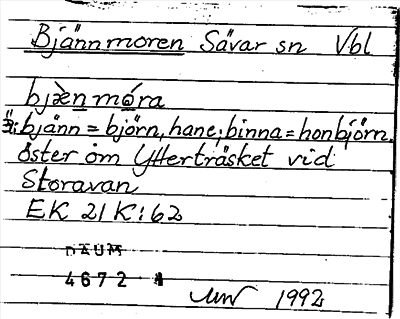 Bjännmoren Sävar sn Vbl
bjæ̀nmǿra
ä: bjänn = björn, hane; binna = honbjörn.
öster om Ytterträsket vid
Storavan
EK 21 K: 62
DAUM
4672
1992